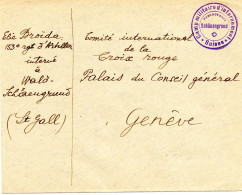 Elie Broïda
153e rgt d'Artillerie
interné
à
Wald-
Schönengrund
(St Gall)
Comité international
de la
Croix rouge
Palais du Conseil général
Genève
Camp militaire d'internement
Schönengrund
Suisse